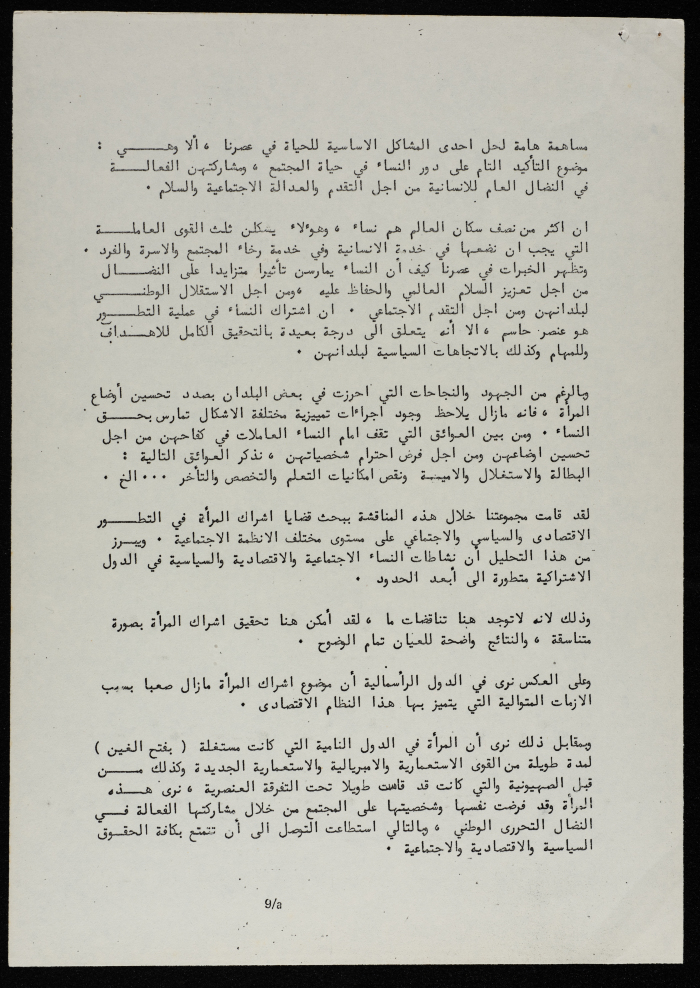 مساهمة هامة لحل احدى المشاكل الاساسية للحياة في عصرنا ، ألا وهــي :
موضوع التأكيد التام على دور النساء في حياة المجتمع ، ومشاركتهن الفعالــة
في النضال العام للانسانية من اجل التقدم والعدالة الاجتماعية والسلام .
ان اكثر من نصف سكان العالم هم نساء ، وهوءلاء يشكلن ثلث القوى العاملــة
التي يجب ان نضعها في خدمة الانسانية وفي خدمة رخاء المجتمع والاسرة والفرد .
وتظهر الخبرات في عصرنا كيف أن النساء يمارسن تأثيرا متزايدا على النضــال
من اجل تعزيز السلام العالمي والحفاظ عليه ، ومن اجل الاستقلال الوطنــي
لبلدانهن ومن اجل التقدم الاجتماعي . ان اشتراك النساء في عملية التطــور
هو عنصر حاسم ، الا أنه يتعلق الى درجة بعيدة بالتحقيق الكامل للاهــداف
وللمهام وكذلك بالاتجاهات السياسية لبلدانهن .
وبالرغم من الجهود والنجاحات التي احرزت في بعض البلدان بصدد تحسين أوضاع
المرأة ، فانه مازال يلاحظ وجود اجراءات تمييزية مختلفة الاشكال تمارس بحــق
النساء . ومن بين العوائق التي تقف امام النساء العاملات في كفاحهن من اجل
تحسين اوضاعهن ومن اجل فرض احترام شخصياتهن ، نذكر العوائق التالية :
البطالة والاستغلال والاميـة ونقص امكانيات التعلم والتخصص والتأخر ... الخ .
لقد قامت مجموعتنا خلال هذه المناقشة ببحث قضايا اشراك المرأة في التطــور
الاقتصادى والسياسي والاجتماعي على مستوى مختلف الانظمة الاجتماعية . ويبــرز
من هذا التحليل أن نشاطات النساء الاجتماعية والاقتصادية والسياسية في الدول
الاشتراكية متطورة الى أبعد الحدود .
وذلك لانه لاتوجد هنا تناقضات ما ، لقد أمكن هنا تحقيق اشراك المرأة بصورة
متناسقة ، والنتائج واضحة للعيان تمام الوضوح .
وعلى العكس نرى في الدول الرأسمالية أن موضوع اشراك المرأة مازال صعبا بسبب
الازمات المتوالية التي يتميز بها هذا النظام الاقتصادى .
وبمقابل ذلك نرى أن المرأة في الدول النامية التي كانت مستغلة ( بفتح الغين )
لمدة طويلة من القوى الاستعمارية والامبريالية والاستعمارية الجديدة وكذلك مــن
قبل الصهيونية والتي كانت قد قاست طويلا تحت التفرقة العنصرية ، نرى هــذه
المرأة وقد فرضت نفسها وشخصيتها على المجتمع من خلال مشاركتها الفعالة فــي
النضال التحررى الوطني ، وبالتالي استطاعت التوصل الى أن تتمتع بكافة الحقــوق
السياسية والاقتصادية والاجتماعية .
9/a